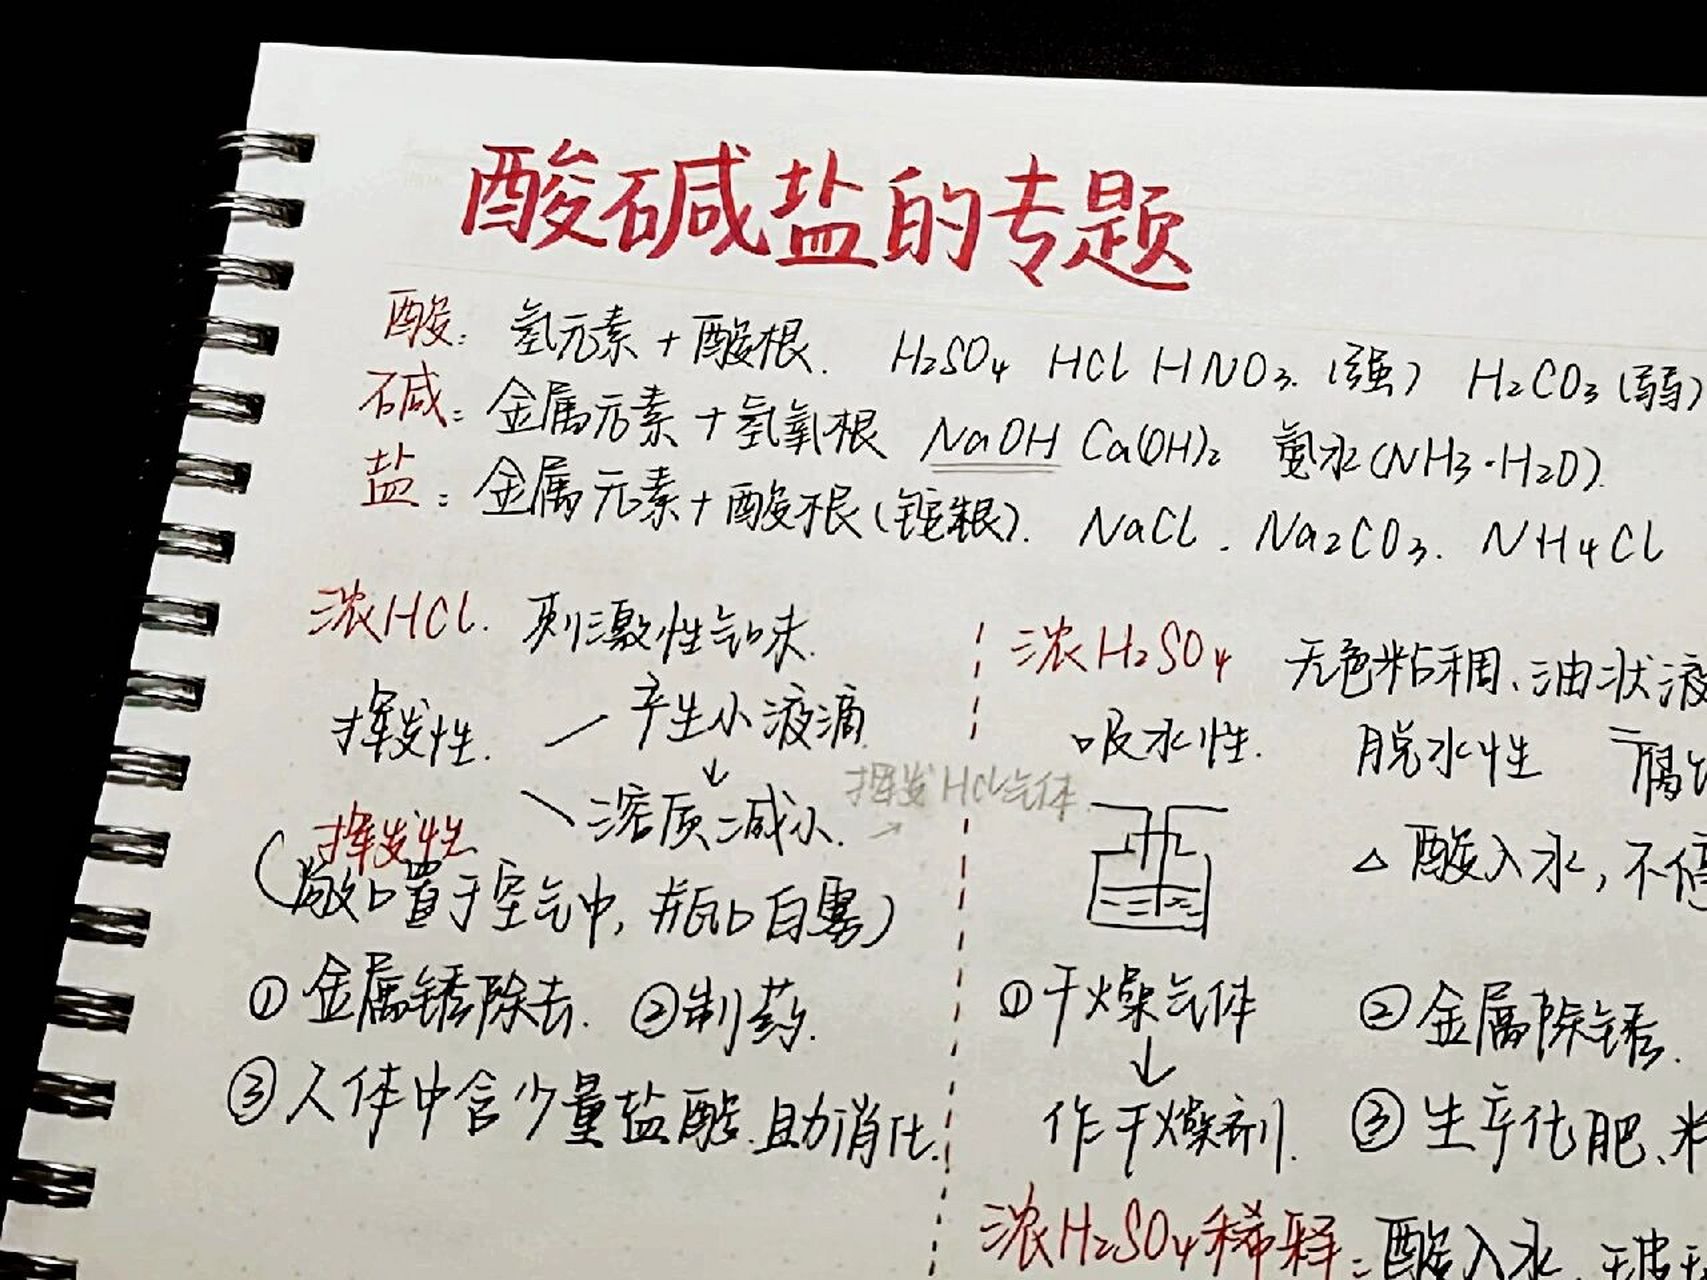 酸碱盐的专题
酸：氢元素+酸根. H₂SO₄ HCl HNO₃.（强） H₂CO₃（弱）
碱：金属元素+氢氧根 NaOH Ca(OH)₂ 氨水(NH₃·H₂O).
盐：金属元素+酸根（铵根）. NaCl . Na₂CO₃. NH₄Cl
浓HCl. 刺激性气味.
挥发性. 产生小液滴
↓
溶质减小.
挥发HCl气体.
挥发性
（敞口置于空气中, 瓶口白雾）
①金属锈除去. ②制药.
③人体中含少量盐酸.助消化.
浓H₂SO₄ 无色粘稠、油状液
吸水性. 脱水性 腐蚀
△ 酸入水, 不
①干燥气体 ②金属除锈.
↓
作干燥剂. ③生产化肥、
浓H₂SO₄稀释：酸入水